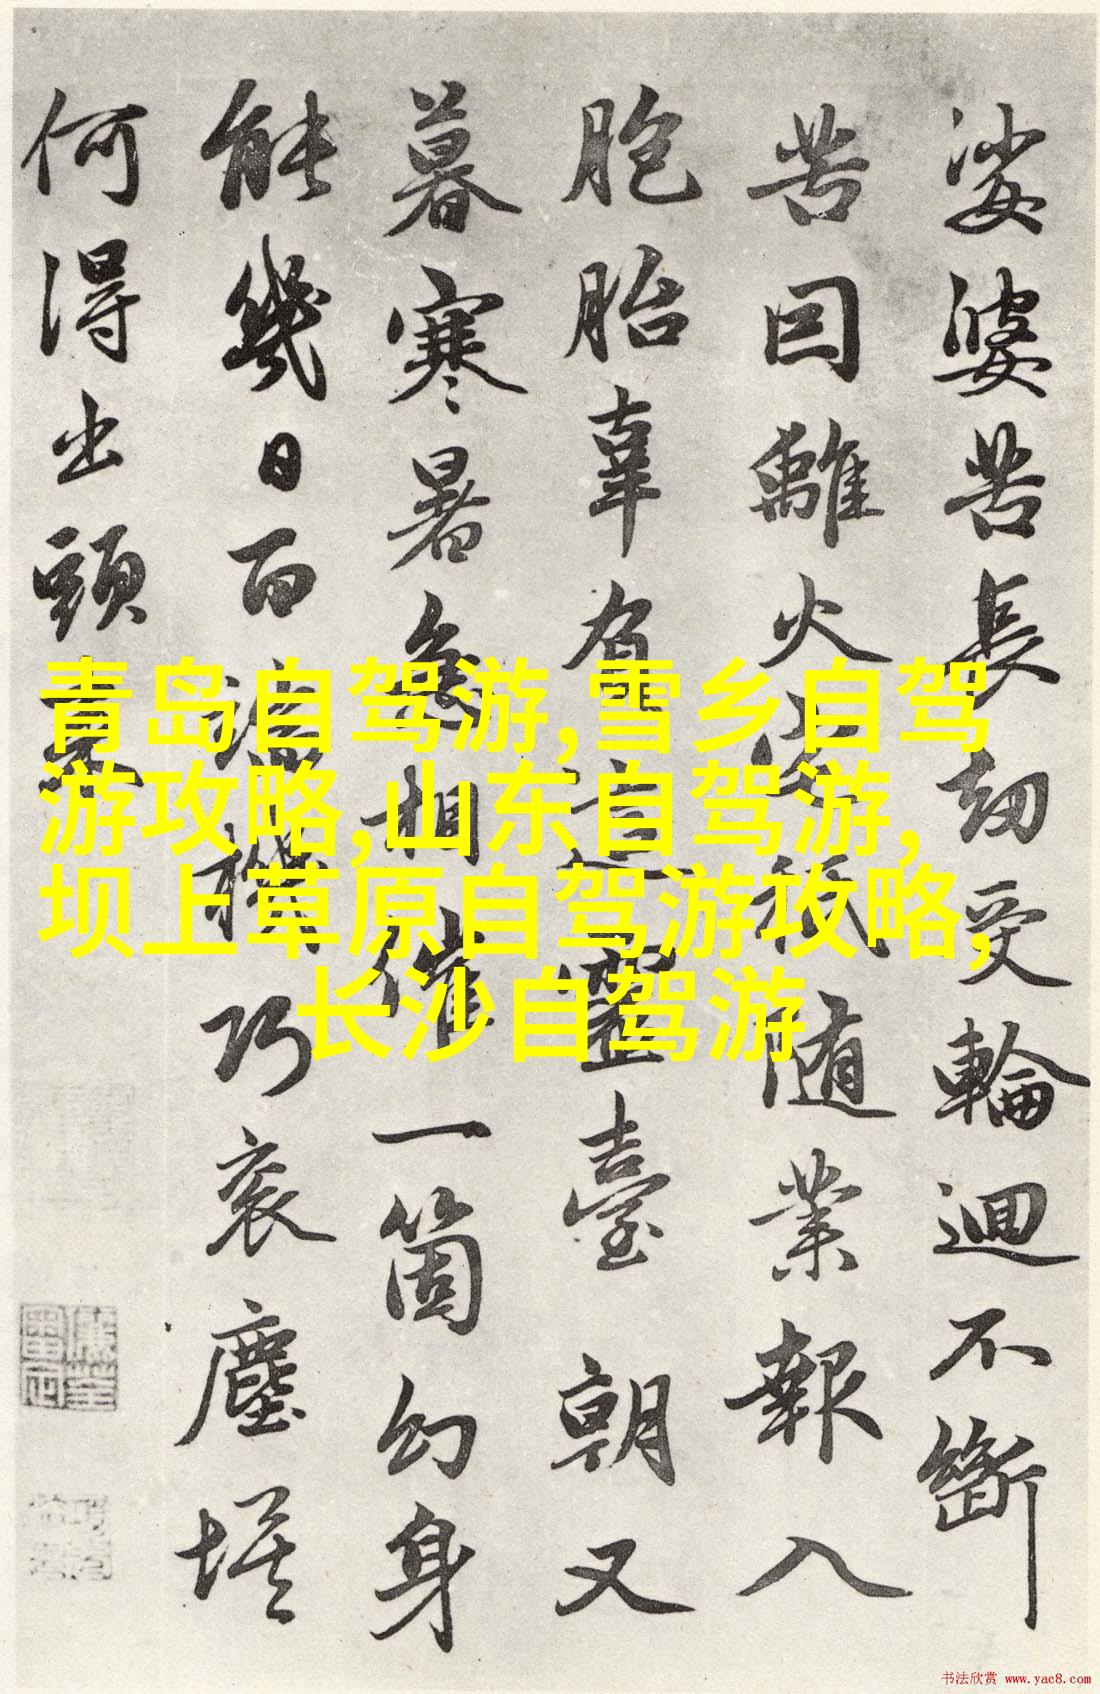 娑婆苦長劫受輪迴不斷
苦因離火宅秪随業報入
胞胎辜負這靈臺朝又
暮寒暑急相催一箇幻身
能幾日百端機巧衮塵埃
何得出頭来
青岛自驾游,雪乡自驾
游攻略,山东自驾游,
坝上草原自驾游攻略,
长沙自驾游
书法欣赏 www.yac8.com